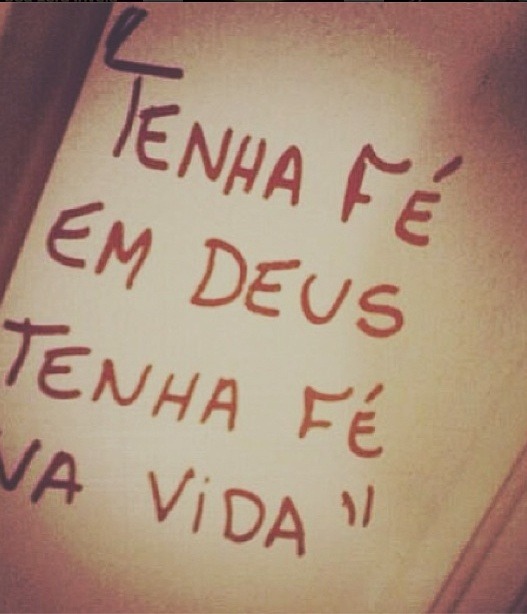 TENHA FÉ
EM DEUS
TENHA FÉ
NA VIDA"